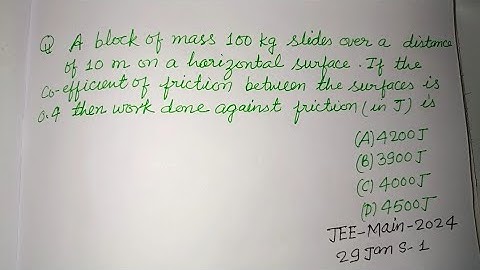 Q A block of mass 100 kg slides over a distance
of 10 m on a horizontal surface. If the
Co-efficient of friction between the surfaces is
0.4 then work done against friction (in J) is
(A) 4200J
(B) 3900J
(C) 4000J
(D) 4500J
JEE-Main-2024
29 Jan S-1